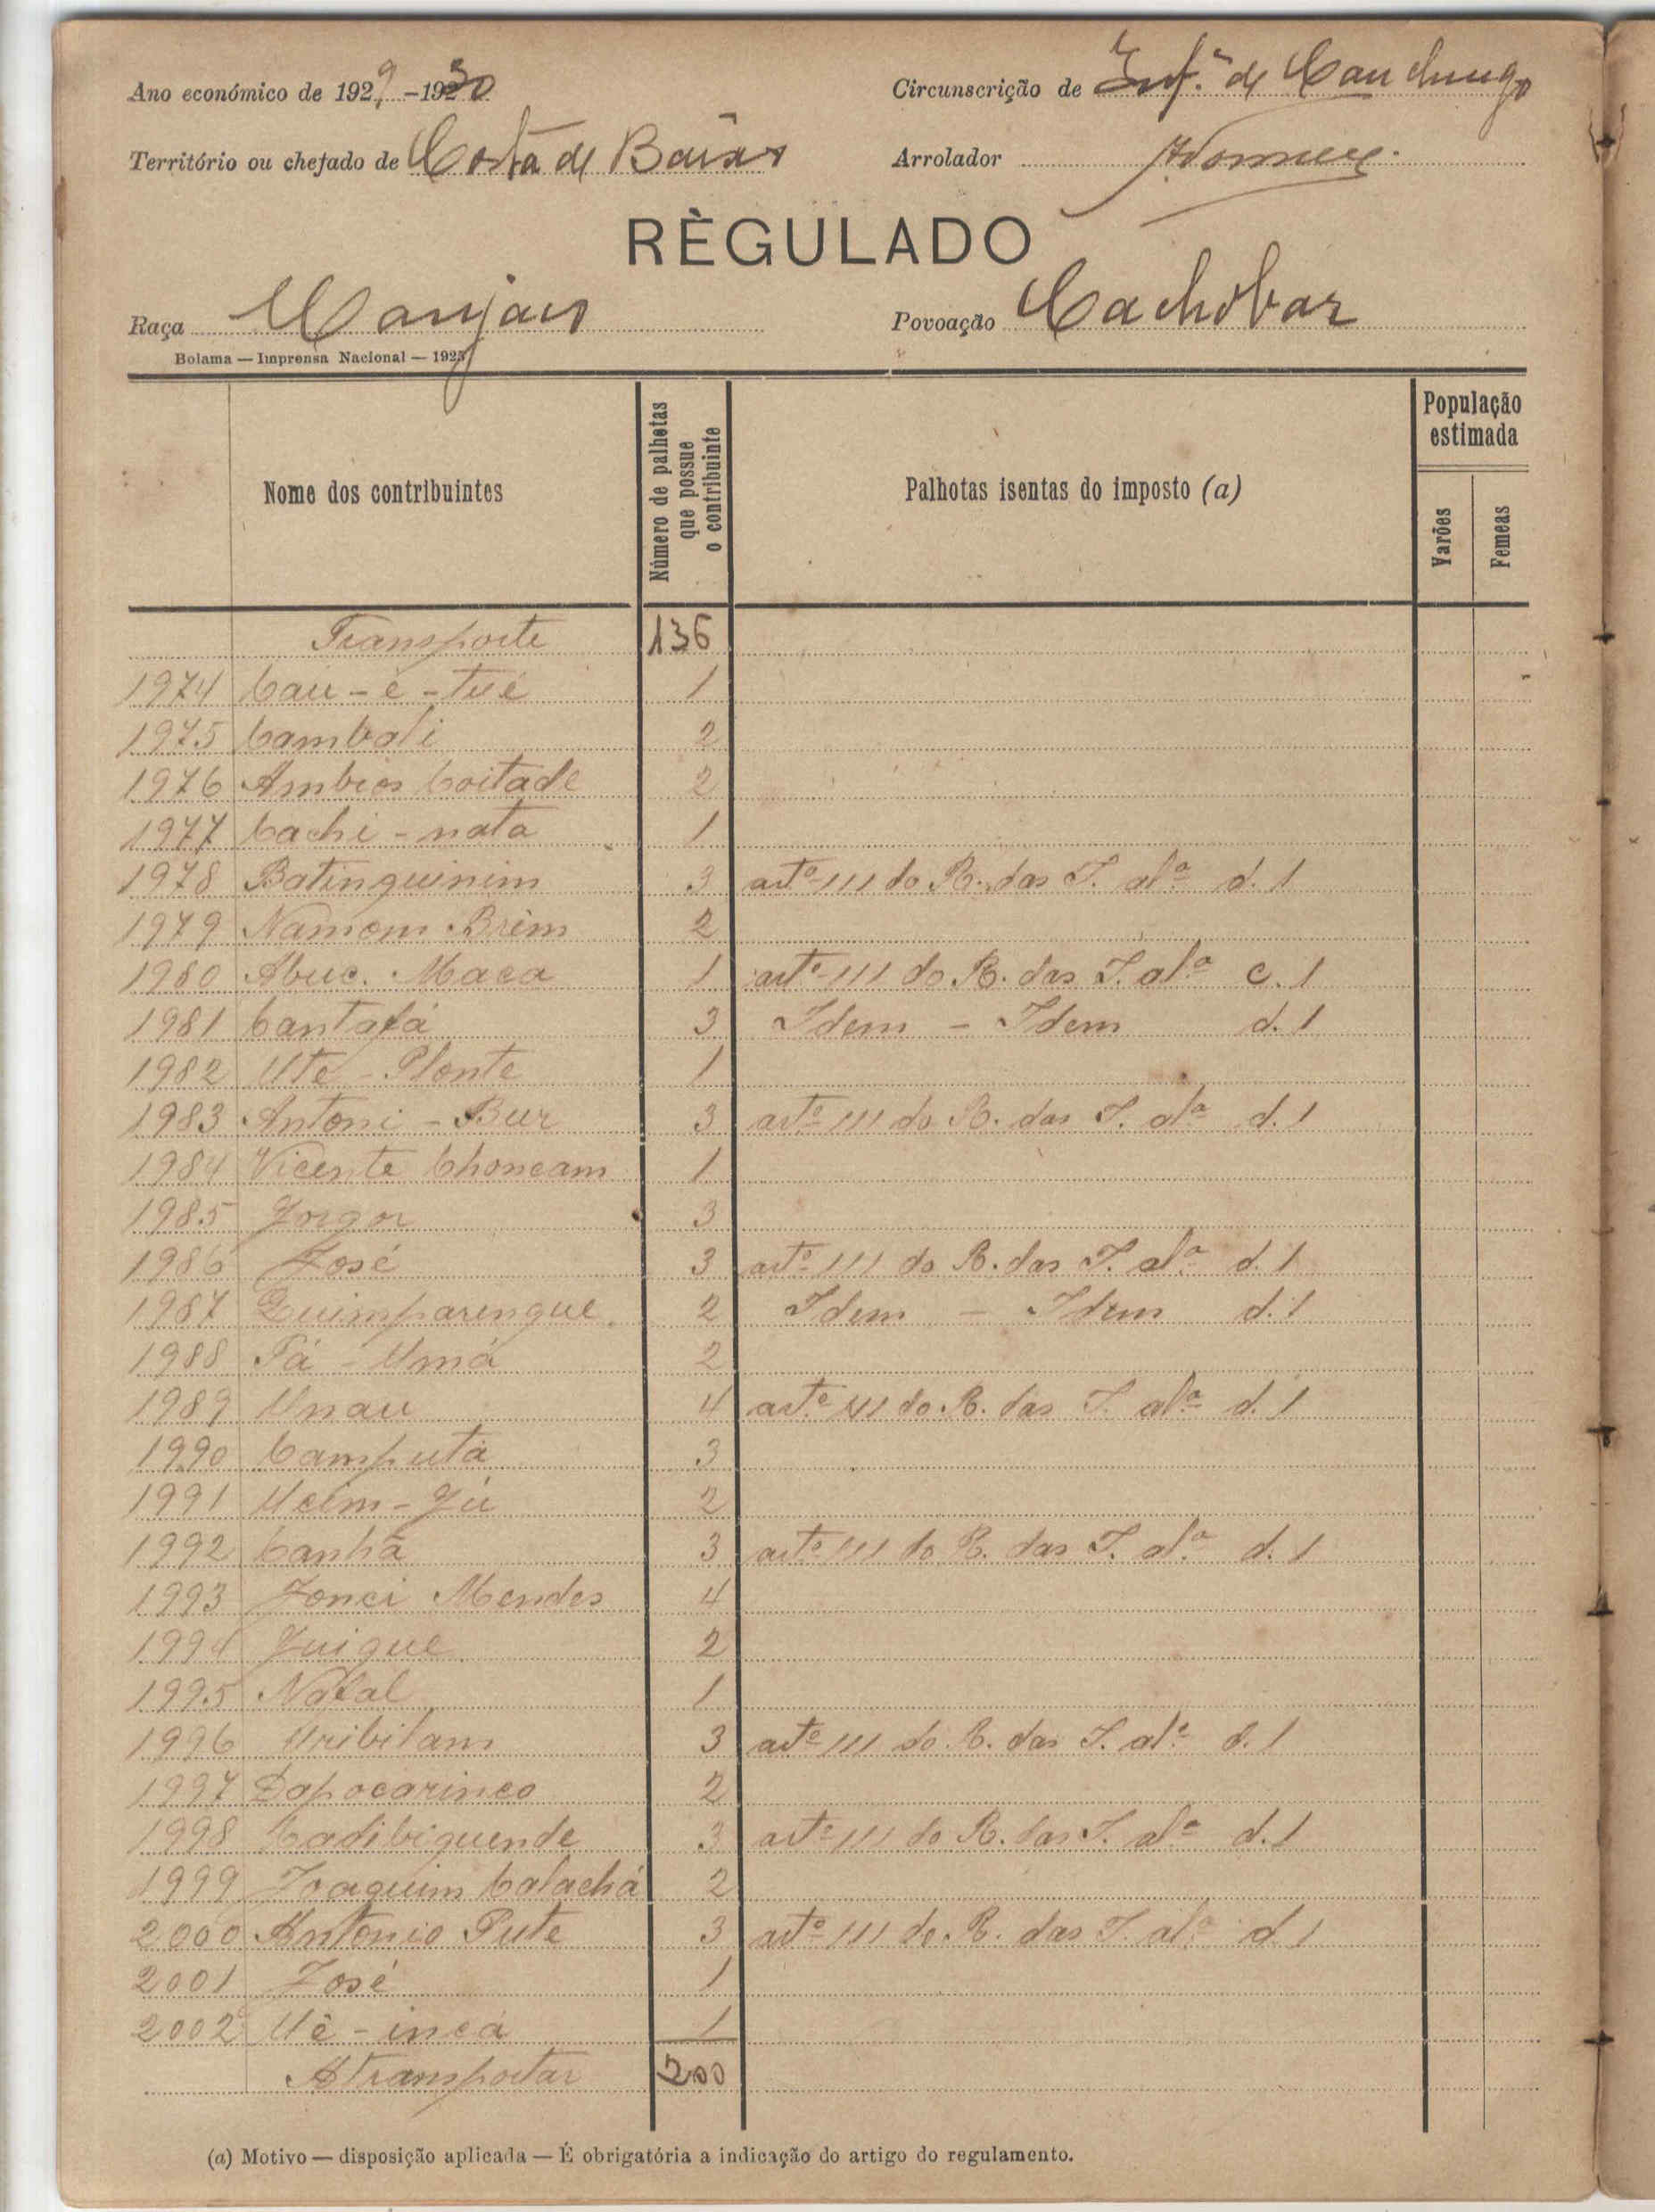 Ano económico de 1929-1930
Circunscrição de Inf.ª de Canchungo
Território ou chefado de Costa de Baixo
Arrolador
RÈGULADO
Raça Manjaco
Povoação Cachobar
Bolama — Imprensa Nacional — 1925
Nome dos contribuintes
Número de palhotas que possue o contribuinte
Palhotas isentas do imposto (a)
População estimada
Varões
Femeas
Transporte 136
1974 Cau-é-tué 1
1975 Cambali 2
1976 Ambios Coitade 2
1977 Cachi-nata 1
1978 Batinguinim 3 artº 111 do R. das I. alª d. 1
1979 Namom Brim 2
1980 Abuc. Maca 1 artº 111 do R. das I. alª c. 1
1981 Cantafá 3 Idem - Idem d. 1
1982 Ute-Plonte 1
1983 Antoni-Bur 3 artº 111 do R. das I. alª d. 1
1984 Vicente Choncam 1
1985 Jorgor 3
1986 José 3 artº 111 do R. das I. alª d. 1
1987 Quimparengue 2 Idem - Idem d. 1
1988 Pá-Umá 2
1989 Unau 4 artº 111 do R. das I. alª d. 1
1990 Camputá 3
1991 Ucim-Jú 2
1992 Canhã 3 artº 111 do R. das I. alª d. 1
1993 Jonci Mendes 4
1994 Juigue 2
1995 Natal 1
1996 Uribilam 3 artº 111 do R. das I. alª d. 1
1997 Dapocarinco 2
1998 Cadibiguende 3 artº 111 do R. das I. alª d. 1
1999 Joaquim Calachá 2
2000 Antonio Pute 3 artº 111 do R. das I. alª d. 1
2001 José 1
2002 Uê-incá 1
A transportar 200
(a) Motivo — disposição aplicada — É obrigatória a indicação do artigo do regulamento.